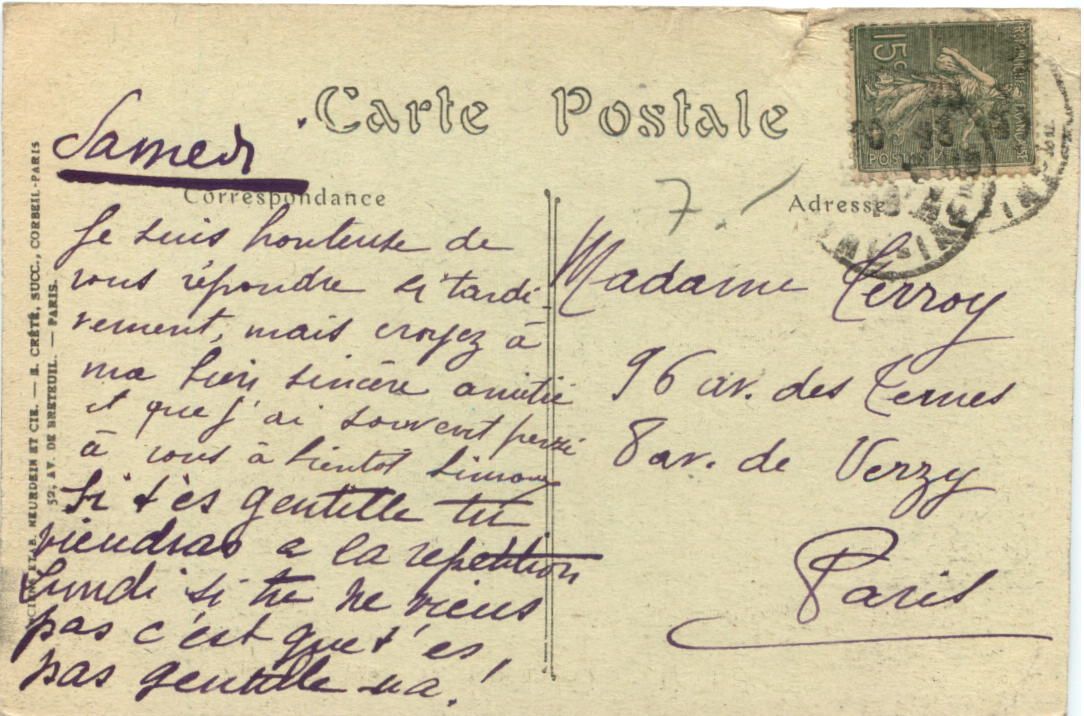 Carte Postale
Samedi
Correspondance
Adresse
7.
Je suis honteuse de
vous répondre si tardi-
vement, mais croyez à
ma bien sincère amitié
et que j'ai souvent pensé
à vous à bientot Simone
Si t'es gentille tu
viendras a la repetition
Lundi si tu ne viens
pas c'est que t'es
pas gentille na!
Madame Terroy
96 av. des Ternes
8 av. de Verzy
Paris
ETAB. NEURDEIN ET CIE. — E. CRÉTÉ, SUCC., CORBEIL-PARIS
52, AV. DE BRETEUIL. — PARIS.
15c
POSTES